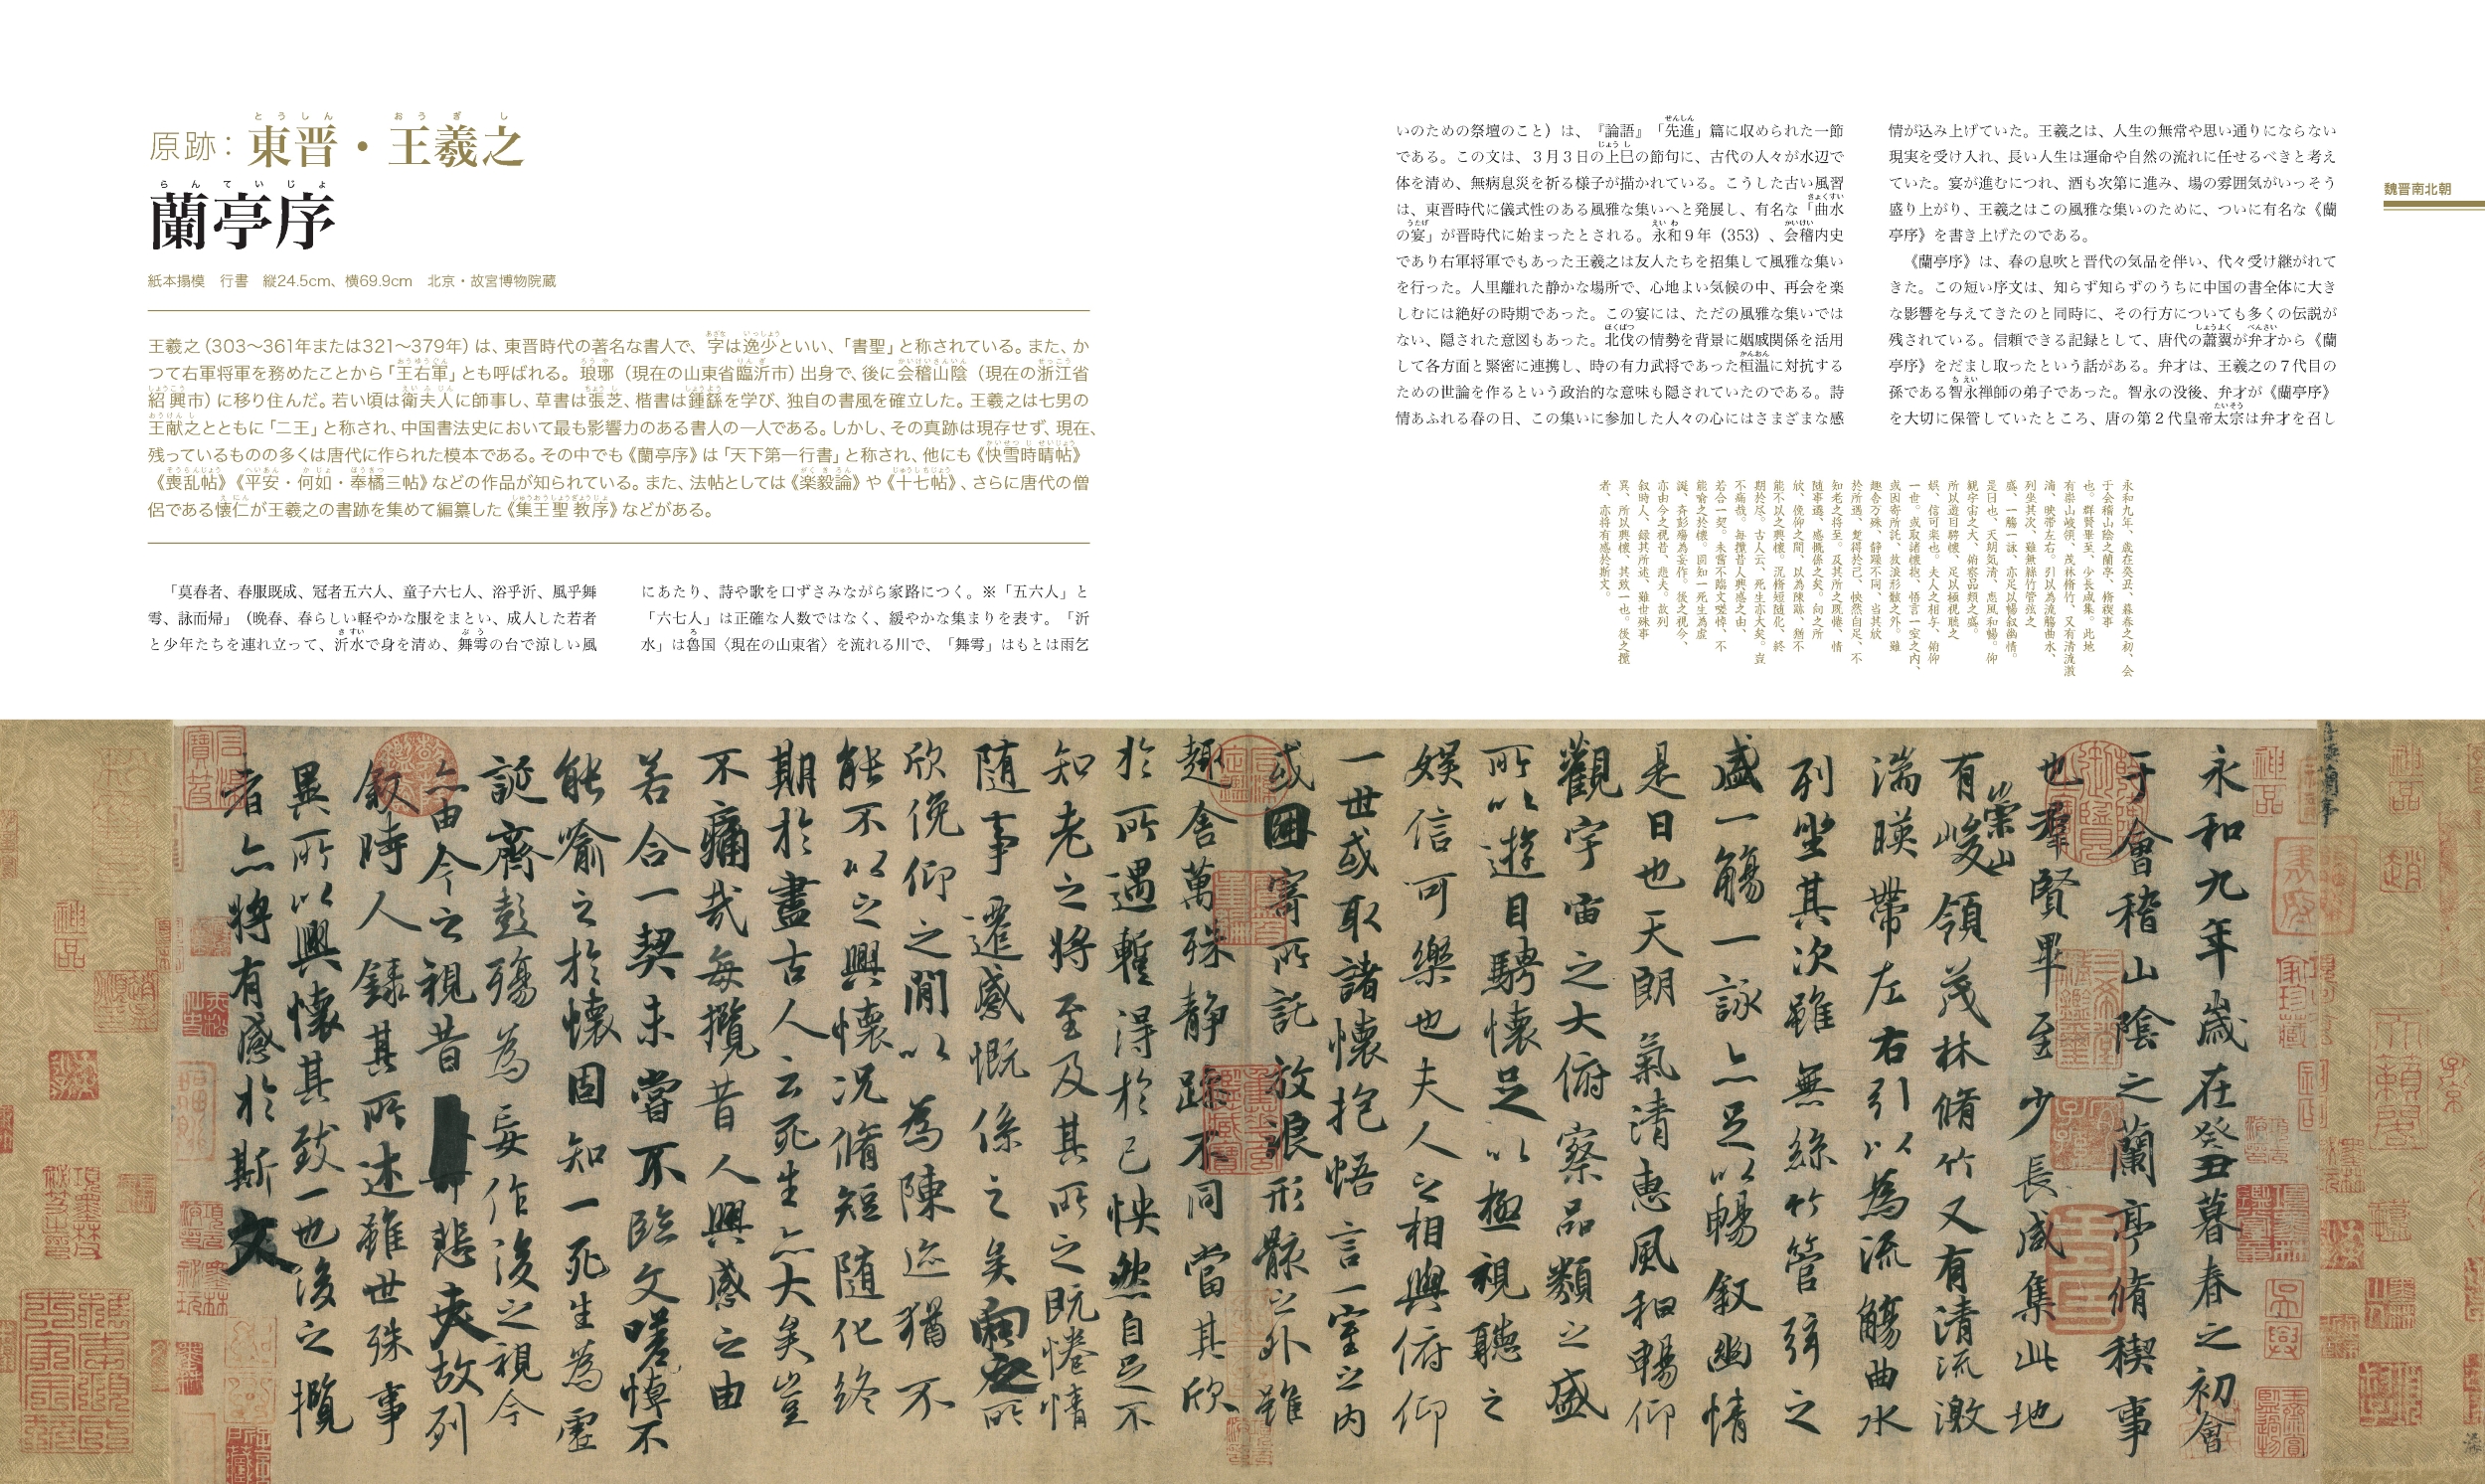 原跡：東晋・王羲之
蘭亭序
紙本搨模　行書　縦24.5cm、横69.9cm　北京・故宮博物院蔵
王羲之（303〜361年または321〜379年）は、東晋時代の著名な書人で、字は逸少といい、「書聖」と称されている。また、か
つて右軍将軍を務めたことから「王右軍」とも呼ばれる。琅琊（現在の山東省臨沂市）出身で、後に会稽山陰（現在の浙江省
紹興市）に移り住んだ。若い頃は衛夫人に師事し、草書は張芝、楷書は鍾繇を学び、独自の書風を確立した。王羲之は七男の
王献之とともに「二王」と称され、中国書法史において最も影響力のある書人の一人である。しかし、その真跡は現存せず、現在、
残っているものの多くは唐代に作られた模本である。その中でも《蘭亭序》は「天下第一行書」と称され、他にも《快雪時晴帖》
《喪乱帖》《平安・何如・奉橘三帖》などの作品が知られている。また、法帖としては《楽毅論》や《十七帖》、さらに唐代の僧
侶である懐仁が王羲之の書跡を集めて編纂した《集王聖教序》などがある。
「莫春者、春服既成、冠者五六人、童子六七人、浴乎沂、風乎舞
雩、詠而帰」（晩春、春らしい軽やかな服をまとい、成人した若者
と少年たちを連れ立って、沂水で身を清め、舞雩の台で涼しい風
にあたり、詩や歌を口ずさみながら家路につく。※「五六人」と
「六七人」は正確な人数ではなく、緩やかな集まりを表す。「沂
水」は魯国〈現在の山東省〉を流れる川で、「舞雩」はもとは雨乞
いのための祭壇のこと）は、『論語』「先進」篇に収められた一節
である。この文は、３月３日の上巳の節句に、古代の人々が水辺で
体を清め、無病息災を祈る様子が描かれている。こうした古い風習
は、東晋時代に儀式性のある風雅な集いへと発展し、有名な「曲水
の宴」が晋時代に始まったとされる。永和９年（353）、会稽内史
であり右軍将軍でもあった王羲之は友人たちを招集して風雅な集い
を行った。人里離れた静かな場所で、心地よい気候の中、再会を楽
しむには絶好の時期であった。この宴には、ただの風雅な集いでは
ない、隠された意図もあった。北伐の情勢を背景に姻戚関係を活用
して各方面と緊密に連携し、時の有力武将であった桓温に対抗する
ための世論を作るという政治的な意味も隠されていたのである。詩
情あふれる春の日、この集いに参加した人々の心にはさまざまな感
情が込み上げていた。王羲之は、人生の無常や思い通りにならない
現実を受け入れ、長い人生は運命や自然の流れに任せるべきと考え
ていた。宴が進むにつれ、酒も次第に進み、場の雰囲気がいっそう
盛り上がり、王羲之はこの風雅な集いのために、ついに有名な《蘭
亭序》を書き上げたのである。
《蘭亭序》は、春の息吹と晋代の気品を伴い、代々受け継がれて
きた。この短い序文は、知らず知らずのうちに中国の書全体に大き
な影響を与えてきたのと同時に、その行方についても多くの伝説が
残されている。信頼できる記録として、唐代の蕭翼が弁才から《蘭
亭序》をだまし取ったという話がある。弁才は、王羲之の７代目の
孫である智永禅師の弟子であった。智永の没後、弁才が《蘭亭序》
を大切に保管していたところ、唐の第２代皇帝太宗は弁才を召し
魏晋南北朝
永和九年、歳在癸丑、暮春之初、会
于会稽山陰之蘭亭、脩禊事
也。群賢畢至、少長咸集。此地
有崇山峻領、茂林脩竹、又有清流激
湍、映帯左右。引以為流觴曲水、
列坐其次。雖無絲竹管弦之
盛、一觴一詠、亦足以暢叙幽情。
是日也、天朗気清、恵風和暢。仰
観宇宙之大、俯察品類之盛。
所以遊目騁懐、足以極視聴之
娯、信可楽也。夫人之相与、俯仰
一世。或取諸懐抱、悟言一室之内、
或因寄所託、放浪形骸之外。雖
趣舎万殊、静躁不同、当其欣
於所遇、暫得於己、怏然自足、不
知老之将至。及其所之既惓、情
随事遷、感慨係之矣。向之所
欣、俛仰之間、以為陳跡、猶不
能不以之興懐。況脩短随化、終
期於尽。古人云、死生亦大矣。豈
不痛哉。毎攬昔人興感之由、
若合一契。未嘗不臨文嗟悼、不
能喩之於懐。固知一死生為虚
誕、斉彭殤為妄作。後之視今、
亦由今之視昔、悲夫。故列
叙時人、録其所述、雖世殊事
異、所以興懐、其致一也。後之攬
者、亦将有感於斯文。
永和九年歳在癸丑暮春之初會
于會稽山陰之蘭亭脩禊事
也羣賢畢至少長咸集此地
有崇山峻領茂林脩竹又有清流激
湍暎帶左右引以為流觴曲水
列坐其次雖無絲竹管弦之
盛一觴一詠亦足以暢叙幽情
是日也天朗氣清恵風和暢仰
觀宇宙之大俯察品類之盛
所以遊目騁懷足以極視聽之
娱信可樂也夫人之相與俯仰
一世或取諸懷抱悟言一室之内
或因寄所託放浪形骸之外雖
趣舎萬殊静躁不同當其欣
於所遇暫得於己怏然自足不
知老之將至及其所之既惓情
随事遷感慨係之矣向之所
欣俛仰之閒以為陳迹猶不
能不以之興懷況脩短随化終
期於盡古人云死生亦大矣豈
不痛哉每攬昔人興感之由
若合一契未嘗不臨文嗟悼不
能喻之於懷固知一死生為虛
誕齊彭殤為妄作後之視今
亦由今之視昔悲夫故列
叙時人録其所述雖世殊事
異所以興懷其致一也後之攬
者亦將有感於斯文